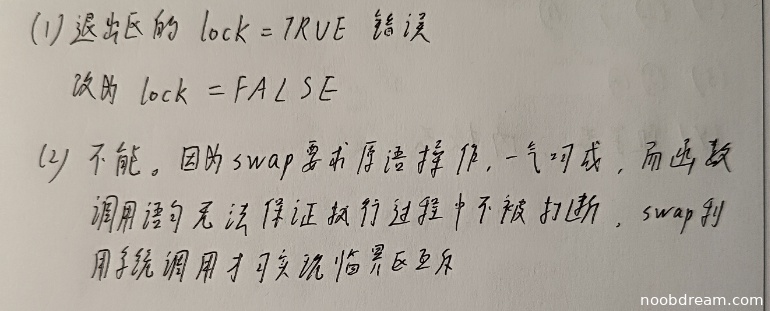 (1) 退出区的 lock = TRUE 错误
改为 lock = FALSE
(2) 不能。因为swap要求原语操作,一气呵成,而函数
调用语句无法保证执行过程中不被打断,swap利
用系统调用才可实现临界区互斥
noobdream.com